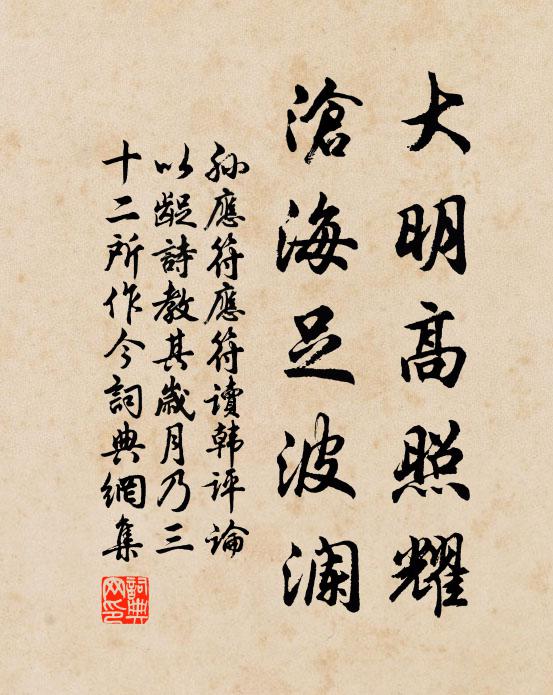 大明高照耀
滄海足波瀾
孫應符應符讀韓評論
以齪詩教其歲月乃三
十二所作今詞典網集
詞典网印